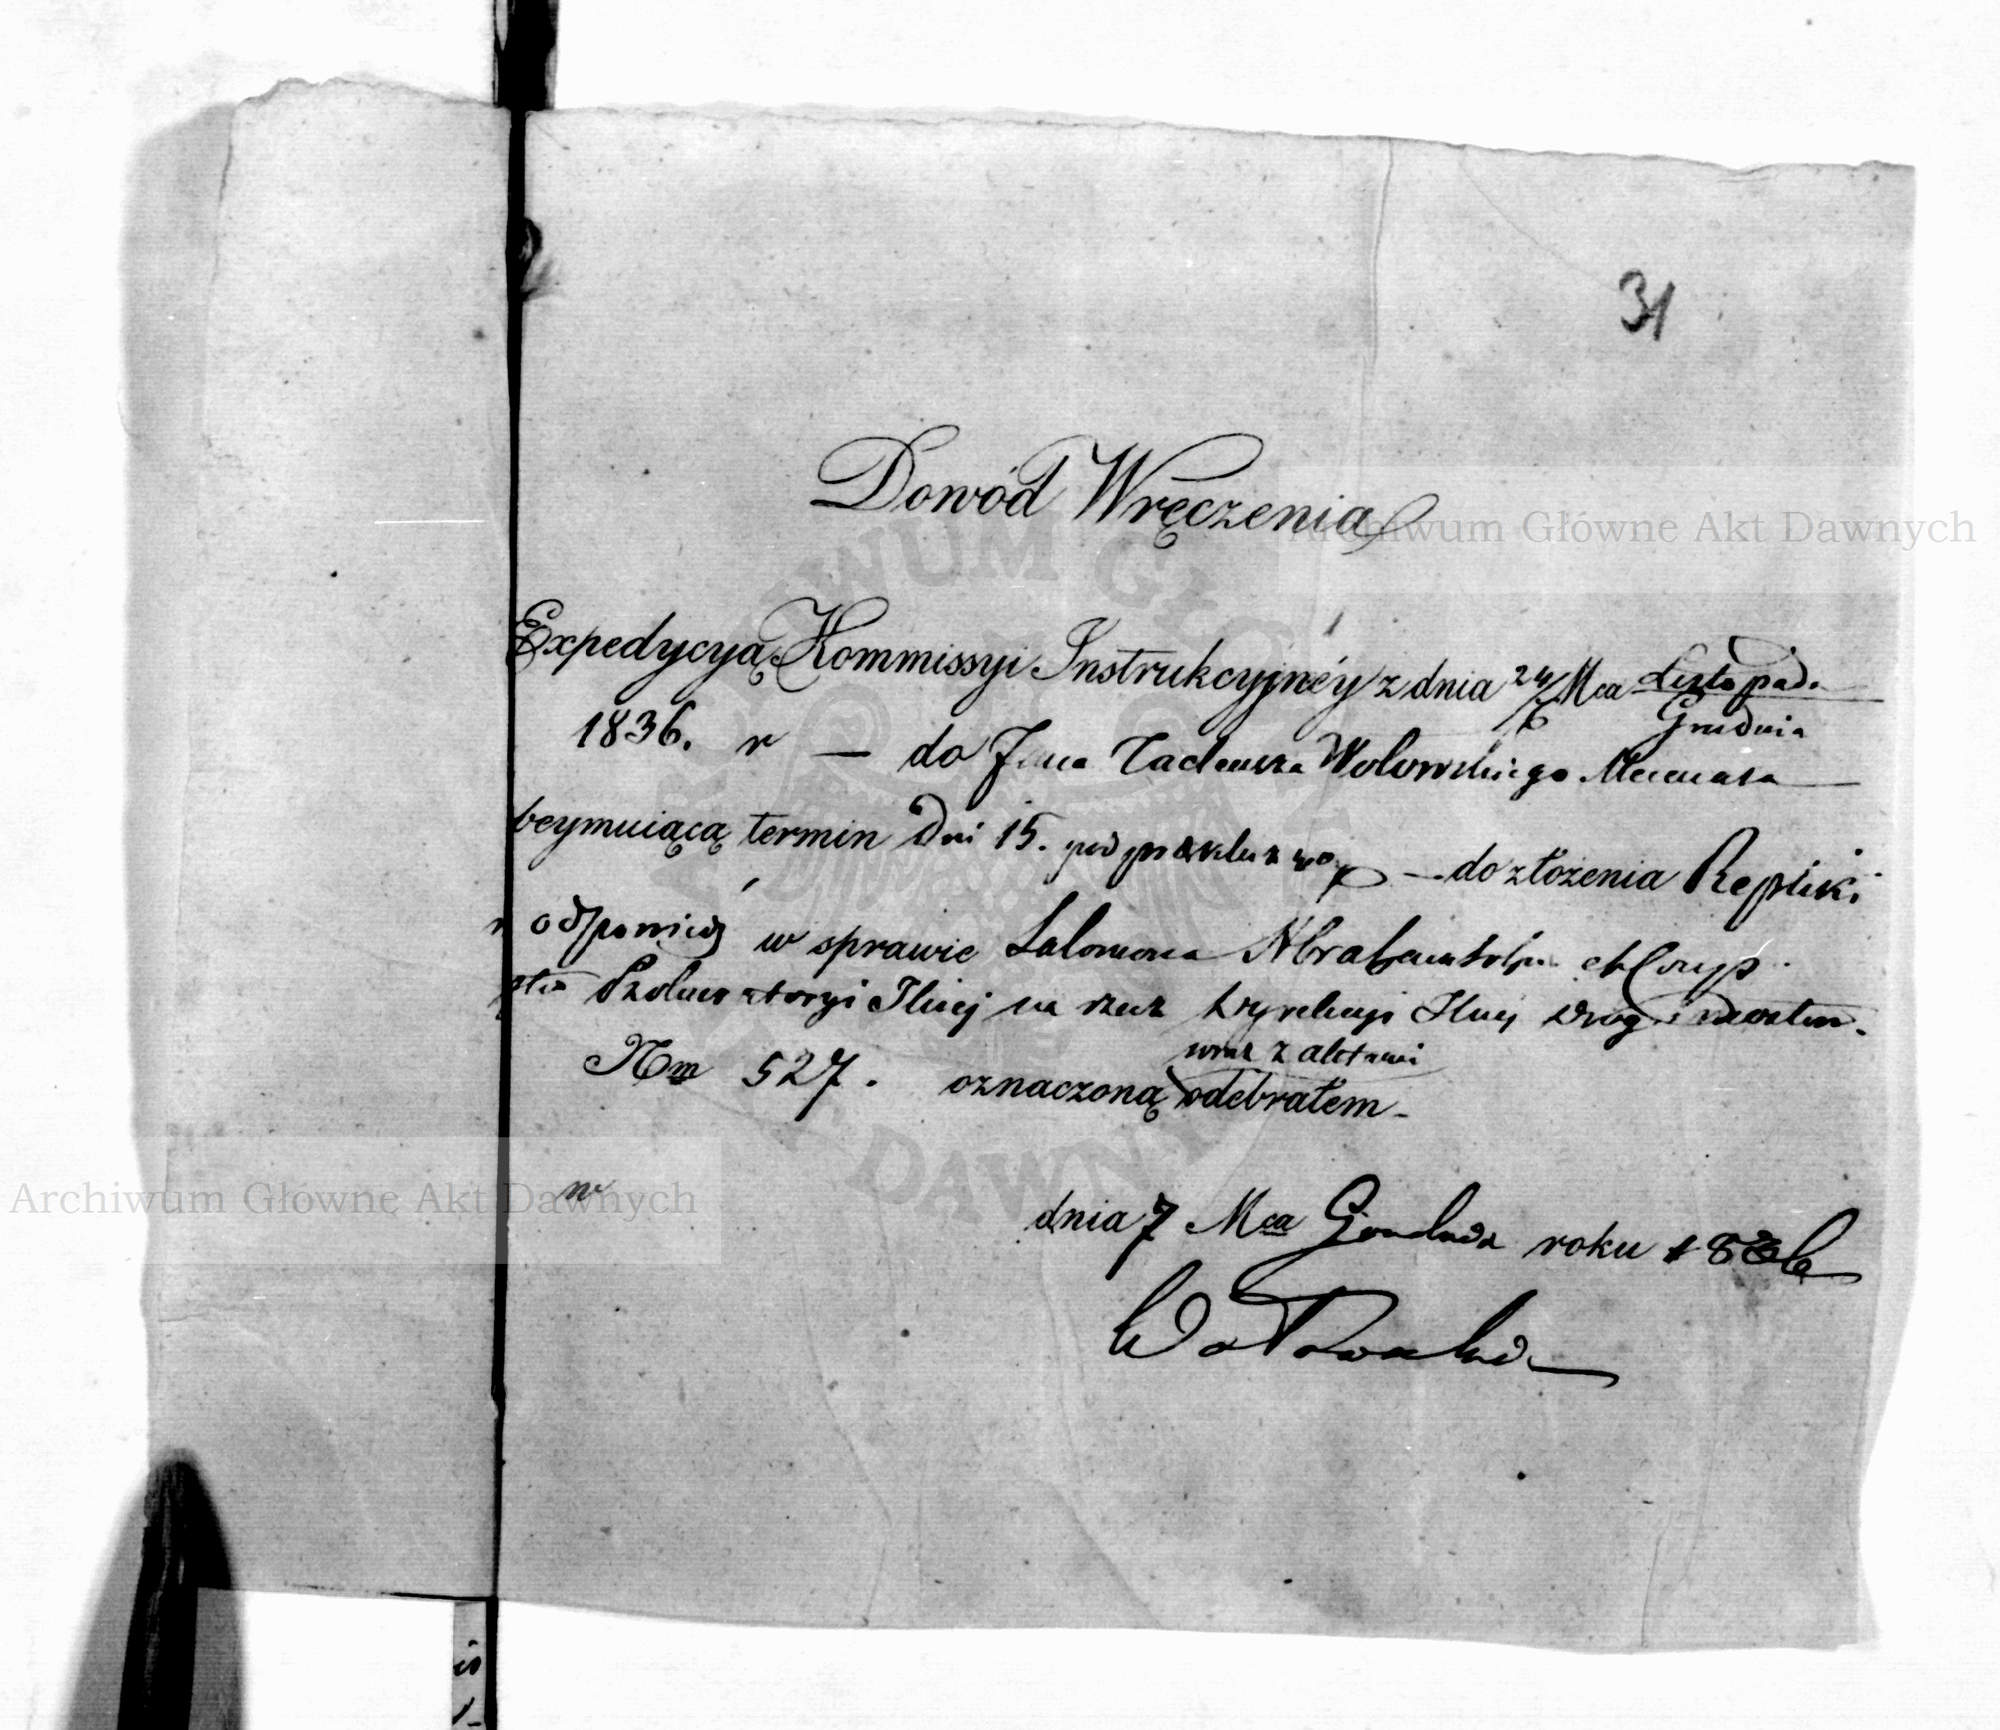 31
Dowód Wręczenia
Expedycyą Kommissyi Instrukcyjnéy z dnia 24/6 Mca Listopada
Grudnia
1836. r — do Jana Tadeusza Wołowskiego Mecenasa
beymuiącą termin dni 15. pod prekluzyą — do złożenia Repliki
odpowiedź w sprawie Salomona
Prokuratoryi na rzecz Dyrekcyi dróg i mostów
wraz z aktami
Nm 527. oznaczoną odebrałem
w
dnia 7 Mca Grudnia roku 1836
Wołowski
Archiwum Główne Akt Dawnych
Archiwum Główne Akt Dawnych